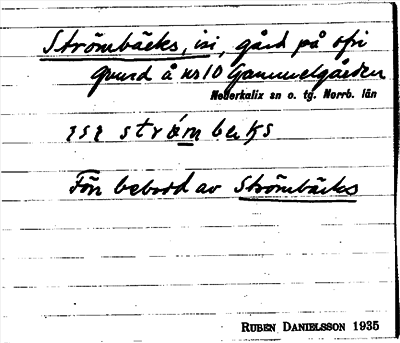 Strömbäcks, isi, gård på ofri
grund å nr 10 Gammelgården
Nederkalix sn o. tg. Norrb. län
ısı strömbeks
Förr bebodd av Strömbäcks
RUBEN DANIELSSON 1935